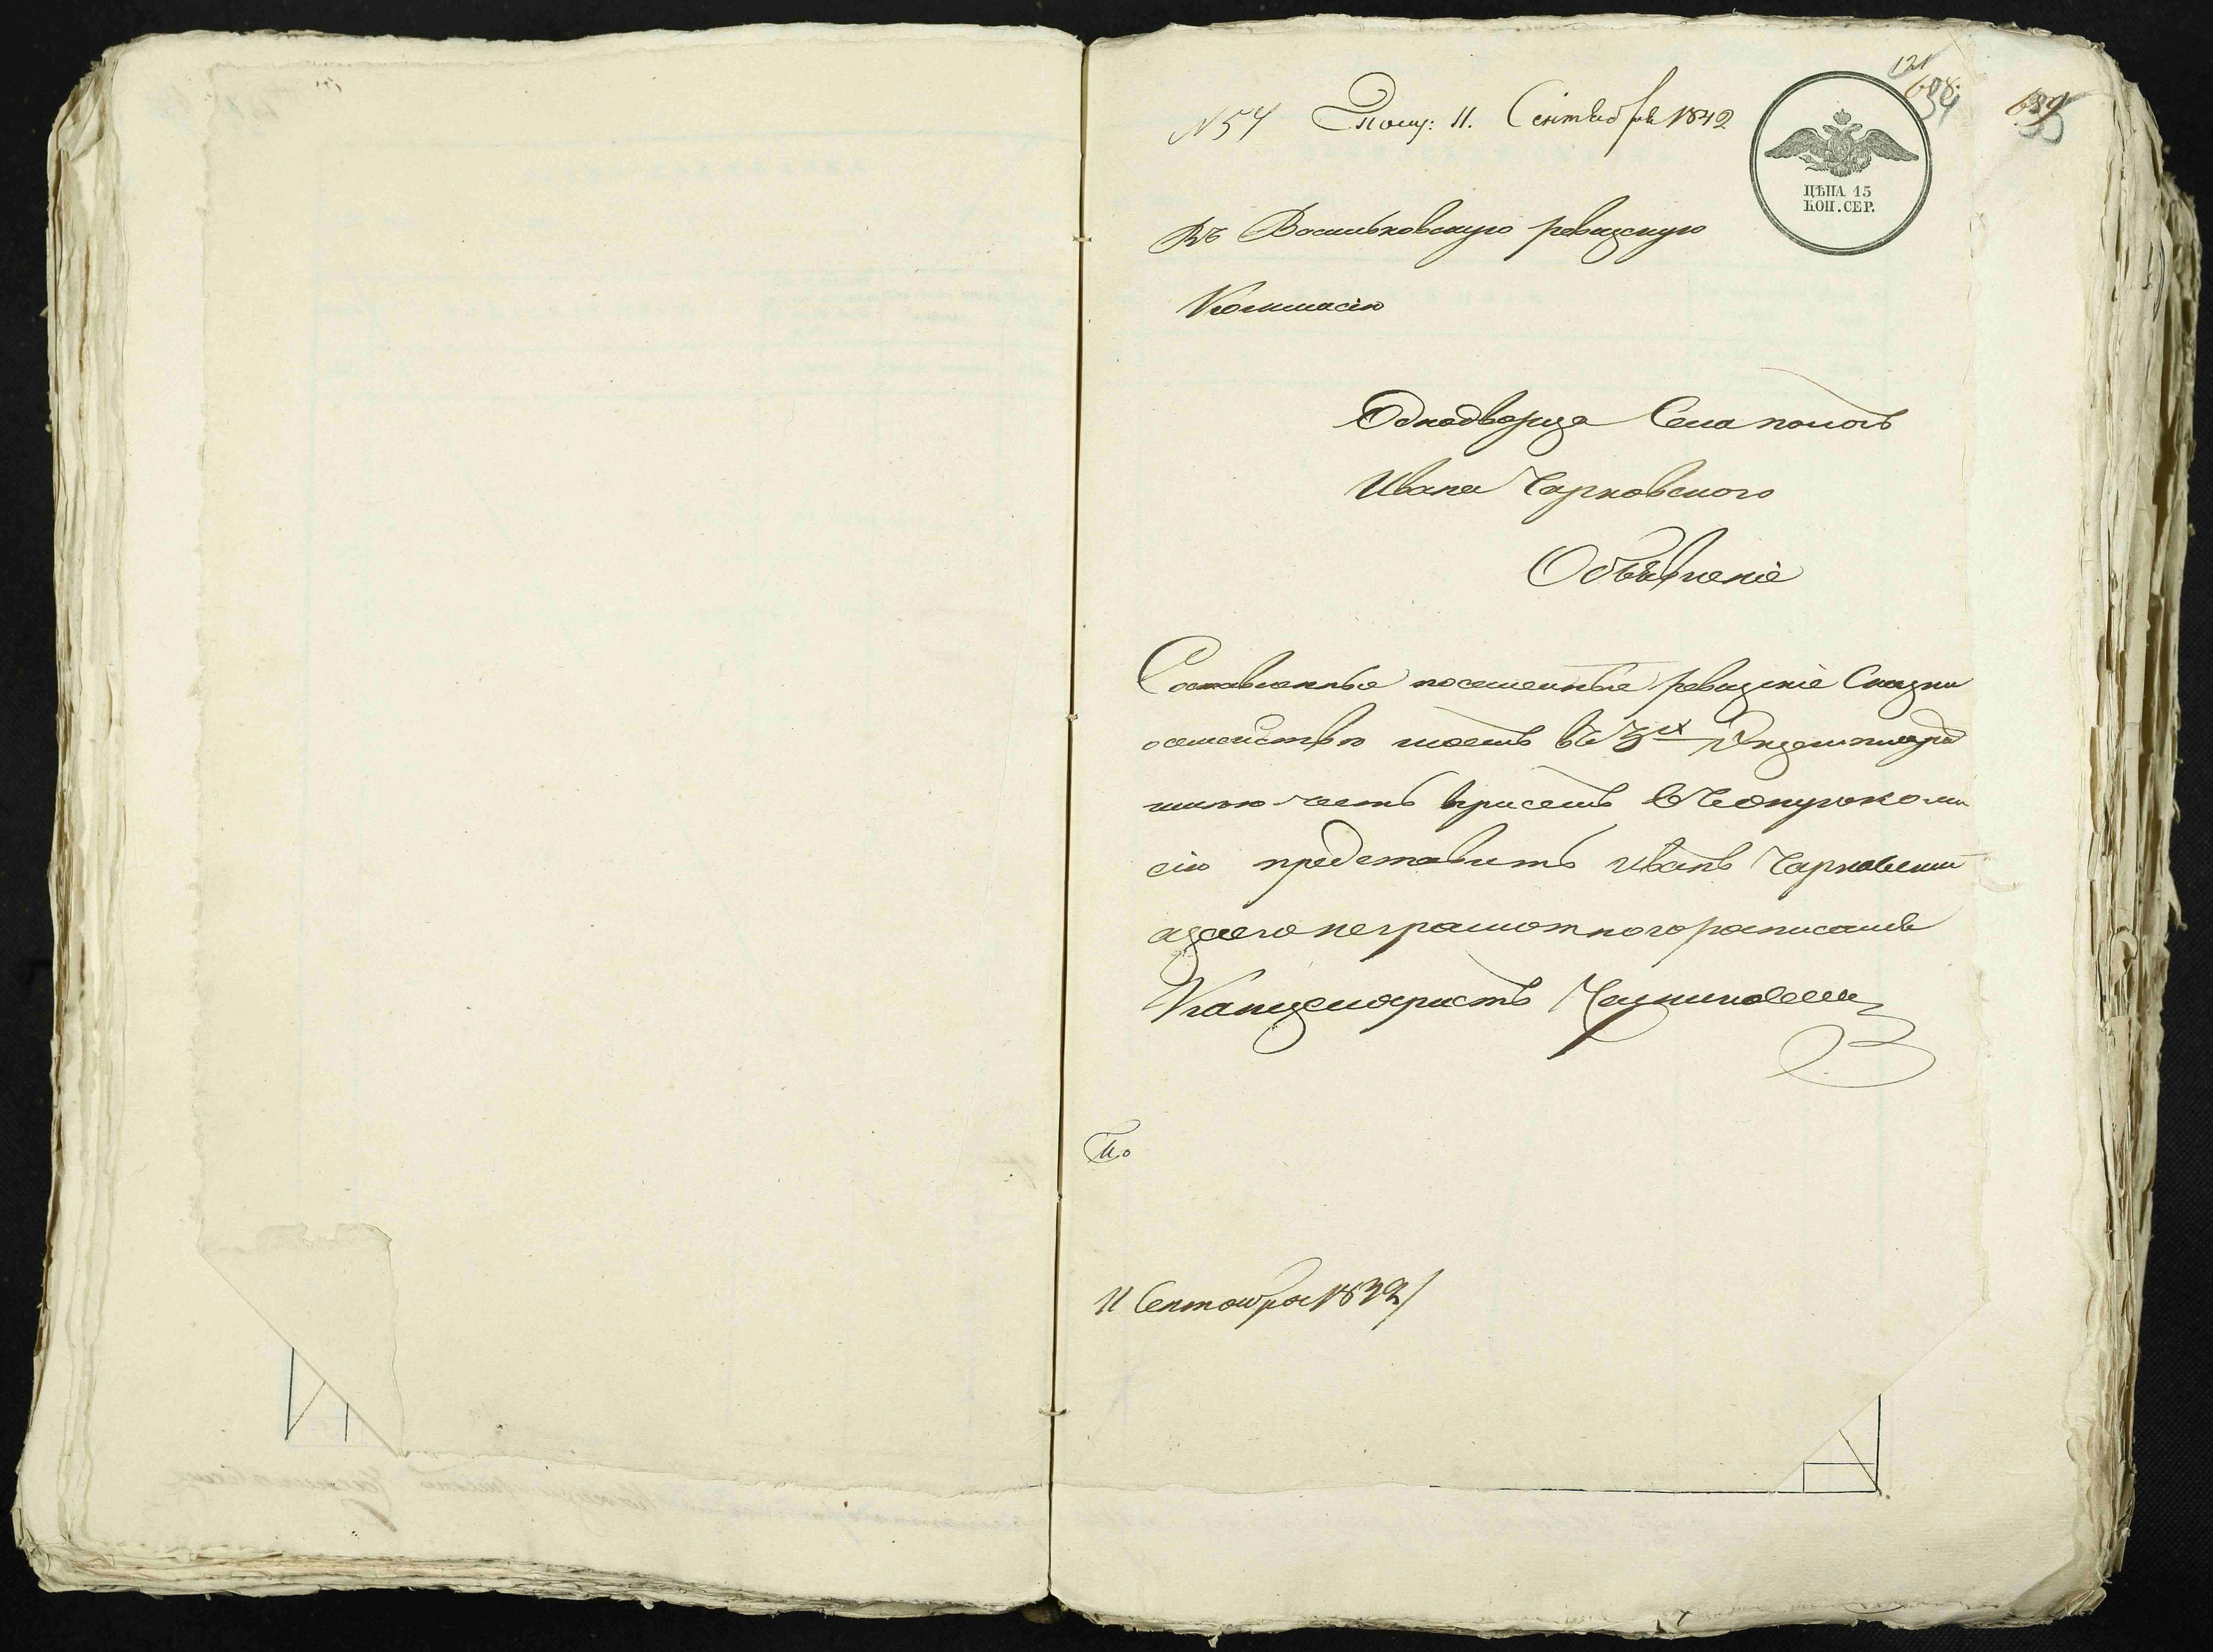 121
688.
34
689
35
N 54 Получ: 11. Сентября 1842
ЦѢНА 15
КОП. СЕР.
Въ Васильковскую ревизскую
Коммисію
Однодворца Села
Ивана Чарковского
Объявленіе
Составленные посемейные ревизкіе Сказки
осемействѣ моемъ въ 3х Экземплярахъ
честь присемъ
сію представить Иванъ Чарковский
азаего неграмотного расписался
Канцеляристъ
По
11 Сентября 1842